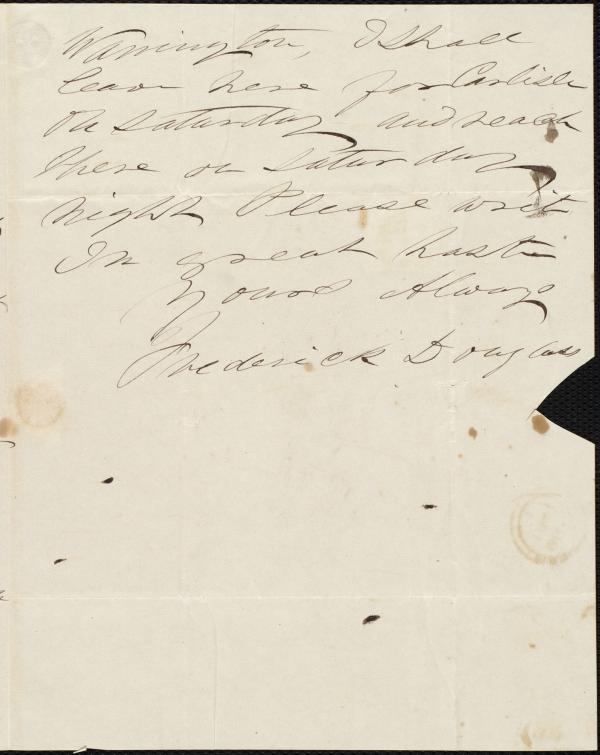 Warrington, I shall
leave here for Carlisle
on saturday and reach
there on saturday
night Please write
In great haste
Yours Always
Frederick Douglass